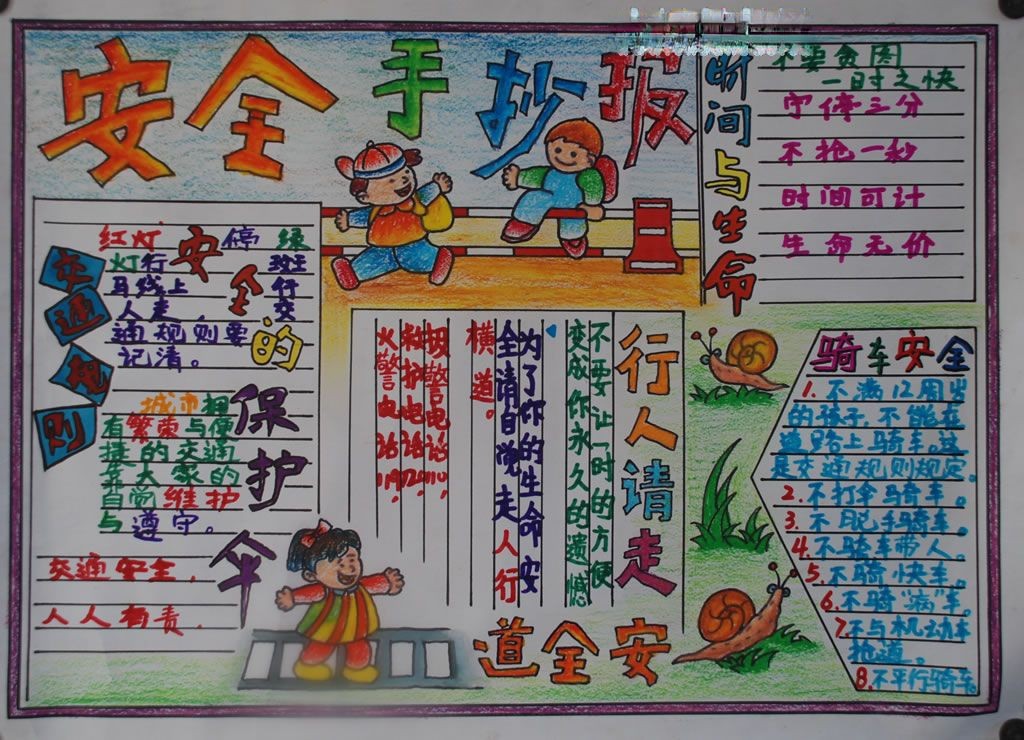 安全手抄报
交通规则
安全的保护伞
红灯停绿
灯行斑
马线上行
人走，交
通规则要
记清。
城市拥
有繁荣与便
捷的交通
靠大家的
自觉维护
与遵守。
交通安全，
人人有责。
行人请走
安全道
不要让一时的方便
变成你永久的遗憾
为了你的生命安
全请自觉走人行
横道。
报警电话110，
救护电话120，
火警电话119，
时间与生命
不要贪图
一时之快
宁停三分
不抢一秒
时间可计
生命无价
骑车安全
1.不满12周岁
的孩子，不能在
道路上骑车。这
是交通规则规定。
2.不打伞骑车。
3.不脱手骑车。
4.不骑车带人。
5.不骑快车。
6.不骑“病”车。
7.不与机动车
抢道。
8.不平行骑车。